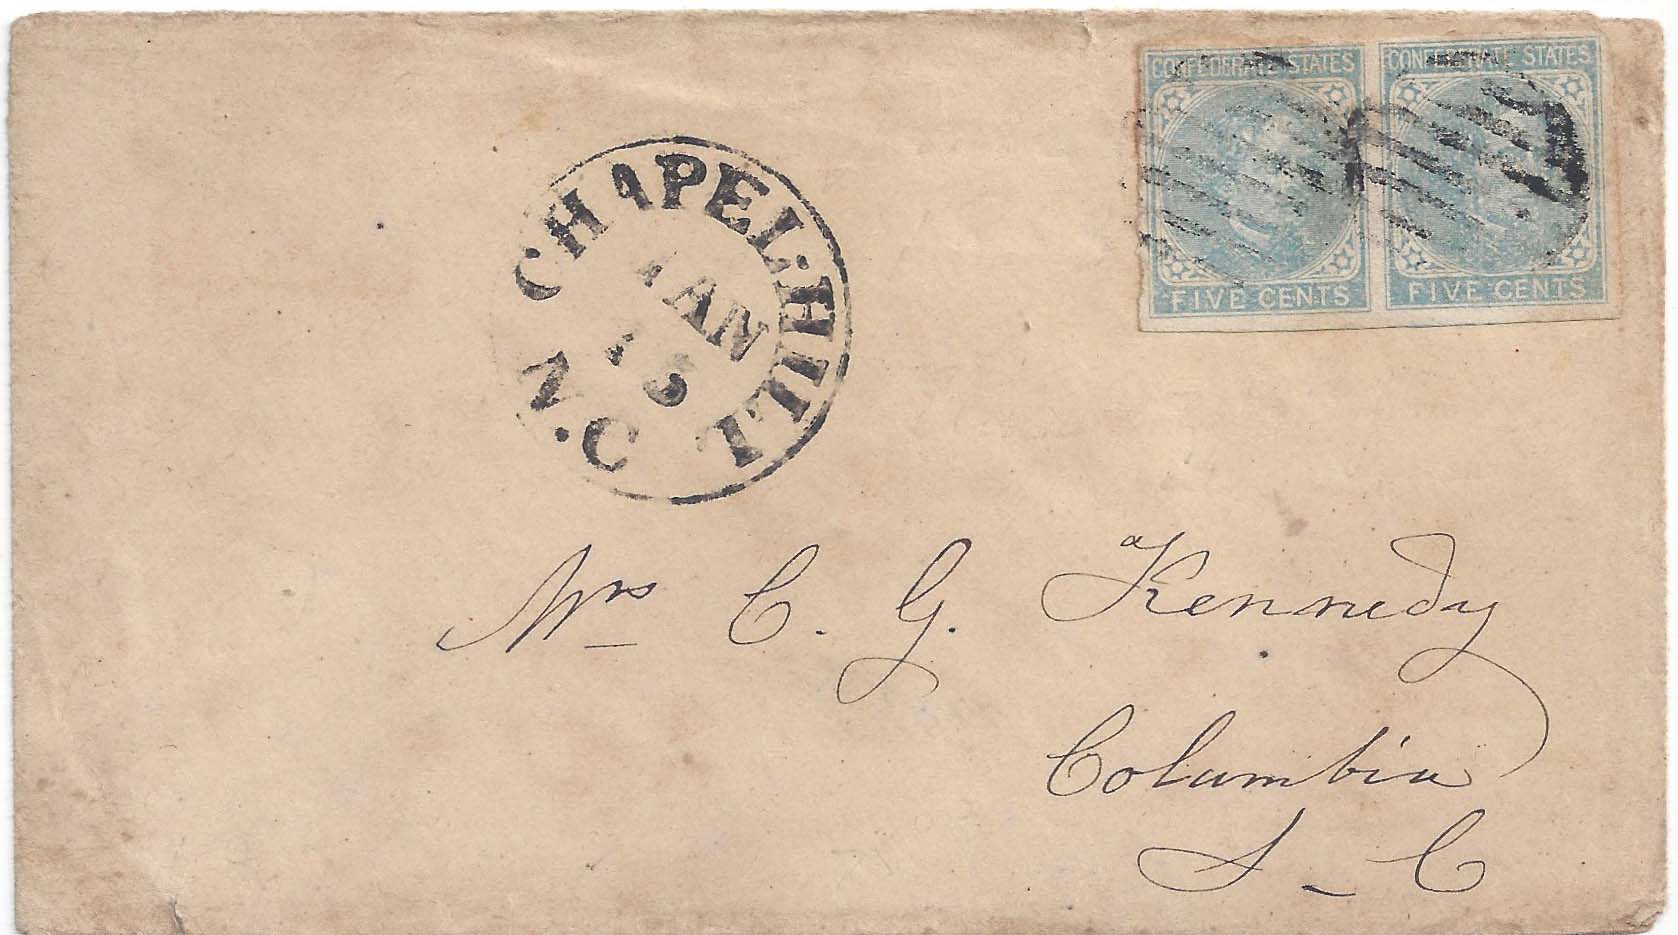 CONFEDERATE STATES
CONFEDERATE STATES
FIVE CENTS
FIVE CENTS
CHAPEL-HILL
N.C
JAN
15
Mrs C. G. Kennedy
Columbia
S-C